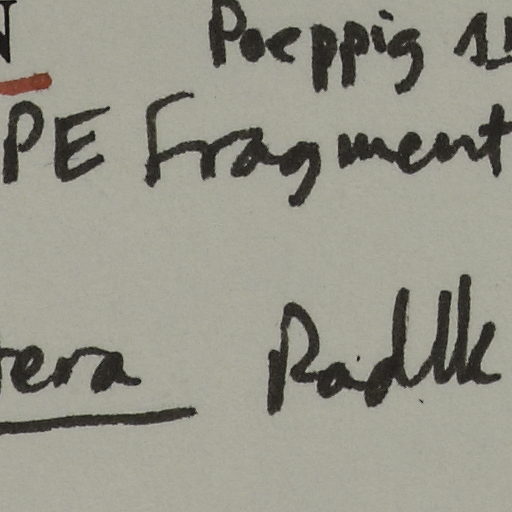 N Poeppig 15
PE Fragment
tera Radlk